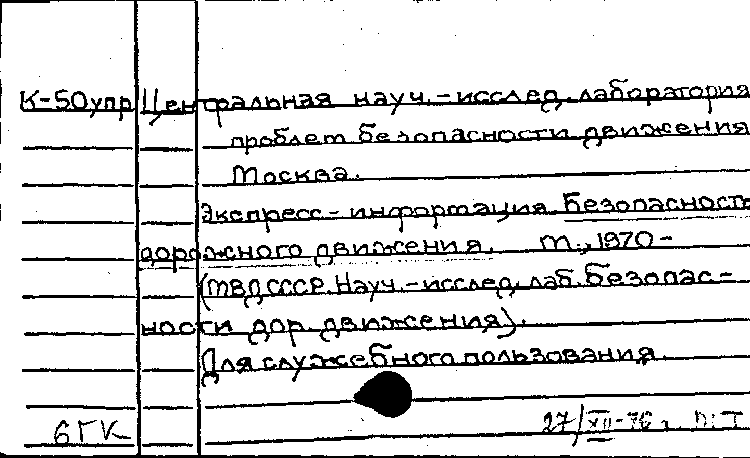 К-50упр Центральная науч.-исслед. лаборатория
проблем безопасности движения
Москва.
Экспресс-информация Безопасность
дорожного движения. М., 1970-
(МВД СССР. Науч.-исслед. лаб. безопас-
ности дор. движения).
Для служебного пользования.
6ГК 27/XII-76 г.